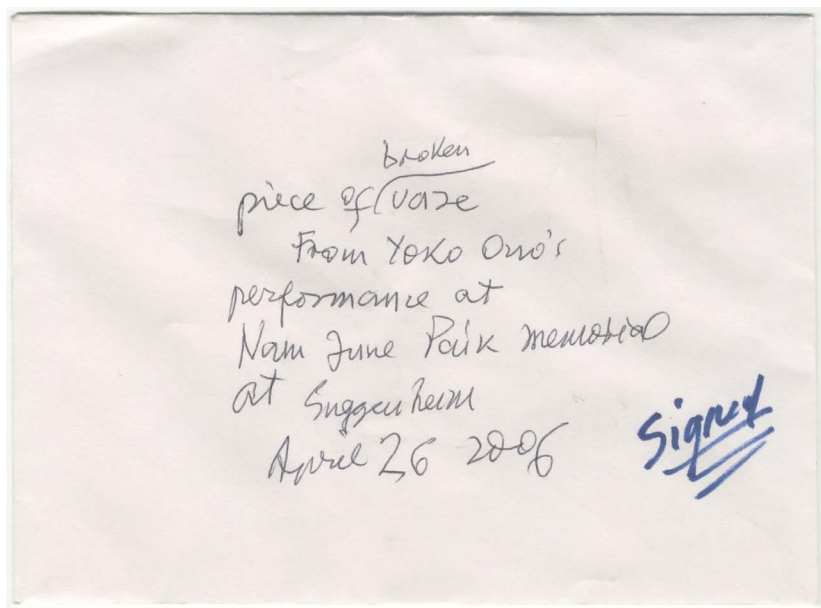 broken
piece of vaze
From Yoko Ono's
performance at
Nam June Paik memorial
at Guggenheim
April 26 2006
Signed